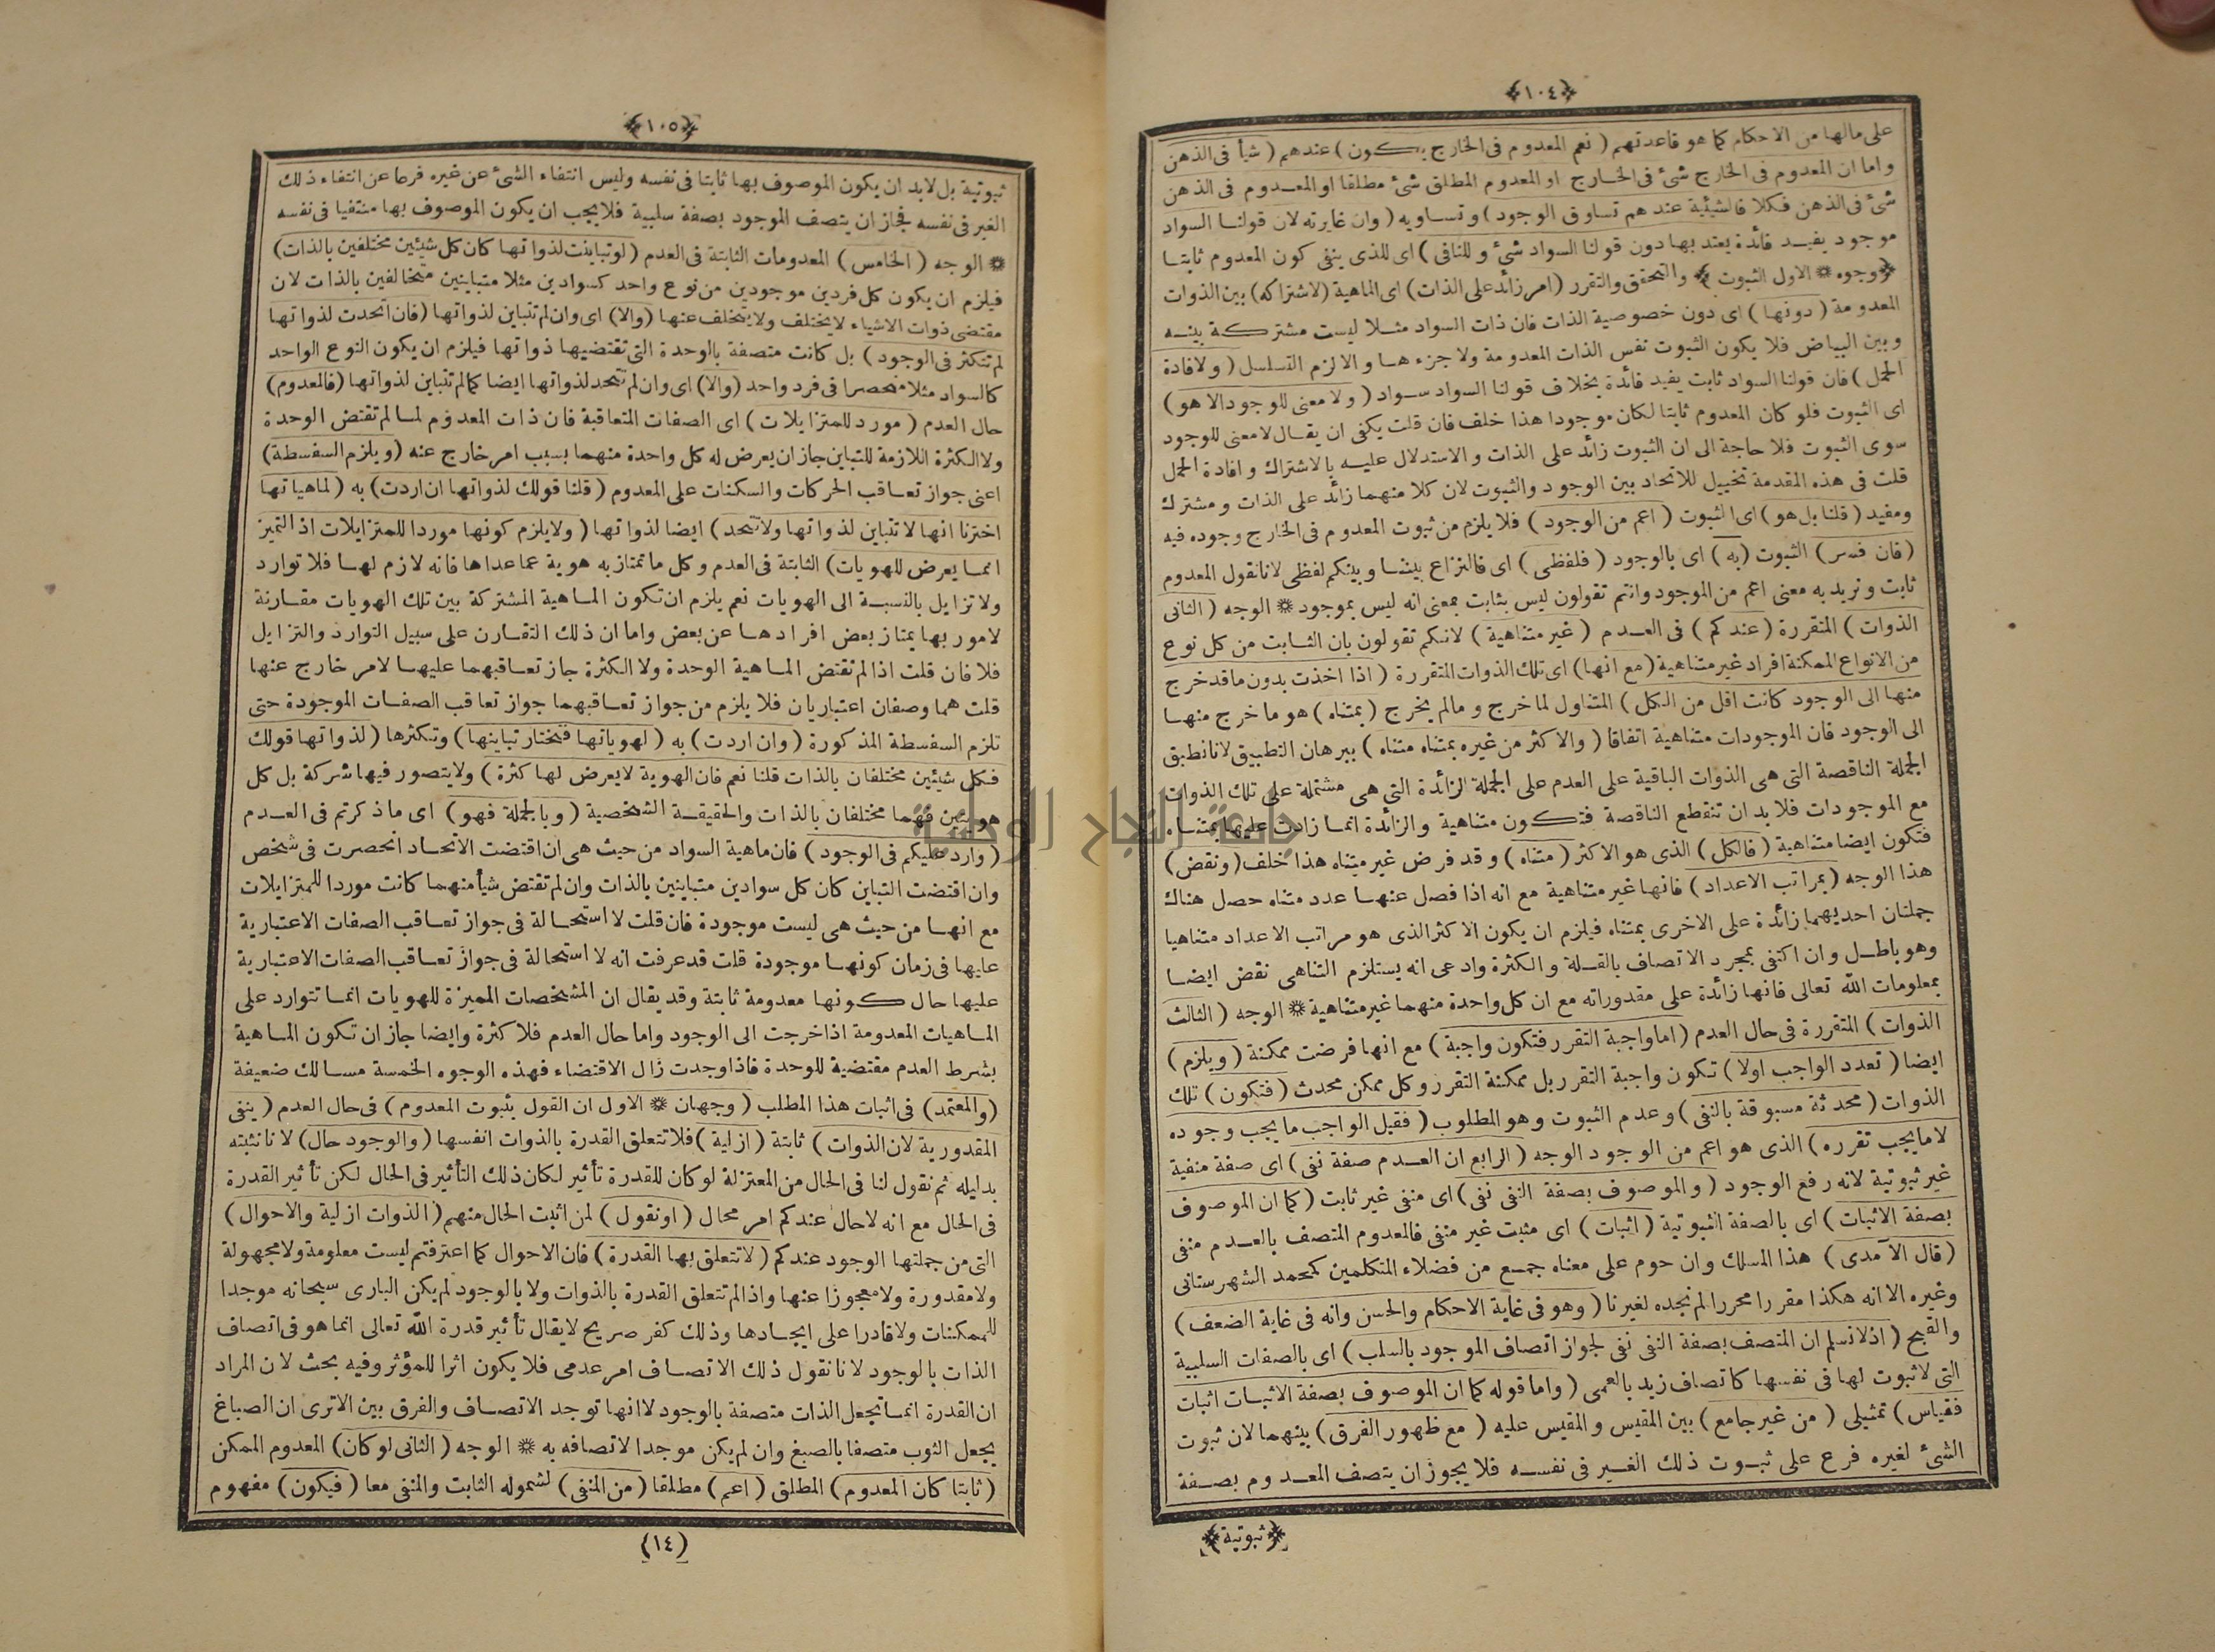 ﴿١٠٤﴾
على مالها من الاحكام كما هو قاعدتهم ( نعم المعدوم فى الخارج يكون ) عندهم ( شيأ فى الذهن
واما ان المعدوم فى الخارج شئ فى الخارج او المعدوم المطلق شئ مطلقا او المعدوم فى الذهن
شئ فى الذهن فكلا فالشيئية عندهم تساوق الوجود ) وتساويه ( وان غايرته لان قولنا السواد
موجود يفيد فائدة يعتد بها دون قولنا السواد شئ وللنافى ) اى للذى ينفى كون المعدوم ثابتا
﴿ وجوه * الاول الثبوت ﴾ والتحقق والتقرر ( امر زائد على الذات ) اى الماهية ( لاشتراكه ) بين الذوات
المعدومة ( دونها ) اى دون خصوصية الذات فان ذات السواد مثلا ليست مشتركة بينه
وبين البياض فلا يكون الثبوت نفس الذات المعدومة ولا جزءها والا لزم التسلسل ( ولافادة
الحمل ) فان قولنا السواد ثابت يفيد فائدة بخلاف قولنا السواد سواد ( ولا معنى للوجود الا هو )
اى الثبوت فلو كان المعدوم ثابتا لكان موجودا هذا خلف فان قلت يكفى ان يقال لا معنى للوجود
سوى الثبوت فلا حاجة الى ان الثبوت زائد على الذات والاستدلال عليه بالاشتراك وافادة الحمل
قلت فى هذه المقدمة تخييل للاتحاد بين الوجود والثبوت لان كلا منهما زائد على الذات ومشترك
ومفيد ( قلنا بل هو ) اى الثبوت ( اعم من الوجود ) فلا يلزم من ثبوت المعدوم فى الخارج وجوده فيه
( فان فسر ) الثبوت ( به ) اى بالوجود ( فلفظى ) اى فالنزاع بيننا وبينكم لفظى لانا نقول المعدوم
ثابت ونريد به معنى اعم من الموجود وانتم تقولون ليس بثابت بمعنى انه ليس بموجود * الوجه ( الثانى
الذوات ) المتقررة ( عندكم ) فى العدم ( غير متناهية ) لانكم تقولون بان الثابت من كل نوع
من الانواع الممكنة افراد غير متناهية ( مع انها ) اى تلك الذوات المتقررة ( اذا اخذت بدون ما قد خرج
منها الى الوجود كانت اقل من الكل ) المتناول لما خرج وما لم يخرج ( بمتناه ) هو ما خرج منها
الى الوجود فان الموجودات متناهية اتفاقا ( والاكثر من غيره بمتناه متناه ) ببرهان التطبيق لانا نطبق
الجملة الناقصة التى هى الذوات الباقية على العدم على الجملة الزائدة التى هى مشتملة على تلك الذوات
مع الموجودات فلا بد ان تنقطع الناقصة فتكون متناهية والزائدة انما زادت عليها بمتناه
فتكون ايضا متناهية ( فالكل ) الذى هو الاكثر ( متناه ) وقد فرض غير متناه هذا خلف ( ونقض )
هذا الوجه ( بمراتب الاعداد ) فانها غير متناهية مع انه اذا فصل عنها عدد متناه حصل هناك
جملتان احديهما زائدة على الاخرى بمتناه فيلزم ان يكون الاكثر الذى هو مراتب الاعداد متناهيا
وهو باطل وان اكتفى بمجرد الاتصاف بالقلة والكثرة وادعى انه يستلزم التناهى نقض ايضا
بمعلومات الله تعالى فانها زائدة على مقدوراته مع ان كل واحدة منهما غير متناهية * الوجه ( الثالث
الذوات ) المتقررة فى حال العدم ( اما واجبة التقرر فتكون واجبة ) مع انها فرضت ممكنة ( ويلزم )
ايضا ( تعدد الواجب اولا ) تكون واجبة التقرر بل ممكنة التقرر وكل ممكن محدث ( فتكون ) تلك
الذوات ( محدثة مسبوقة بالنفى ) وعدم الثبوت وهو المطلوب ( فقيل الواجب ما يجب وجوده
لا ما يجب تقرره ) الذى هو اعم من الوجود الوجه ( الرابع ان العدم صفة نفى ) اى صفة منفية
غير ثبوتية لانه رفع الوجود ( والموصوف بصفة النفى نفى ) اى منفى غير ثابت ( كما ان الموصوف
بصفة الاثبات ) اى بالصفة الثبوتية ( اثبات ) اى مثبت غير منفى فالمعدوم المتصف بالعدم منفى
( قال الآمدى ) هذا المسلك وان حوم على معناه جمع من فضلاء المتكلمين كمحمد الشهرستانى
وغيره الا انه هكذا مقررا محررا لم نجده لغيرنا ( وهو فى غاية الاحكام والحسن وانه فى غاية الضعف )
والقبح ( اذ لا نسلم ان المتصف بصفة النفى نفى لجواز اتصاف الموجود بالسلب ) اى بالصفات السلبية
التى لا ثبوت لها فى نفسها كاتصاف زيد بالعمى ( واما قوله كما ان الموصوف بصفة الاثبات اثبات
فقياس ) تمثيلى ( من غير جامع ) بين المقيس والمقيس عليه ( مع ظهور الفرق ) بينهما لان ثبوت
الشئ لغيره فرع على ثبوت ذلك الغير فى نفسه فلا يجوز ان يتصف المعدوم بصفة
﴿ ثبوتية ﴾
﴿١٠٥﴾
ثبوتية بل لابد ان يكون الموصوف بها ثابتا فى نفسه وليس انتفاء الشئ عن غيره فرعا عن انتفاء ذلك
الغير فى نفسه فجاز ان يتصف الموجود بصفة سلبية فلا يجب ان يكون الموصوف بها منتفيا فى نفسه
* الوجه ( الخامس ) المعدومات الثابتة فى العدم ( لو تباينت لذواتها كان كل شيئين مختلفين بالذات )
فيلزم ان يكون كل فردين موجودين من نوع واحد كسوادين مثلا متباينين متخالفين بالذات لان
مقتضى ذوات الاشياء لا يختلف ولا يتخلف عنها ( والا ) اى وان لم تتباين لذواتها ( فان اتحدت لذواتها
لم تتكثر فى الوجود ) بل كانت متصفة بالوحدة التى تقتضيها ذواتها فيلزم ان يكون النوع الواحد
كالسواد مثلا منحصرا فى فرد واحد ( والا ) اى وان لم تتحد لذواتها ايضا كما لم تتباين لذواتها ( فالمعدوم )
حال العدم ( مورد للمتزايلات ) اى الصفات المتعاقبة فان ذات المعدوم لما لم تقتض الوحدة
ولا الكثرة اللازمة للتباين جاز ان يعرض له كل واحدة منهما بسبب امر خارج عنه ( ويلزم السفسطة )
اعنى جواز تعاقب الحركات والسكنات على المعدوم ( قلنا قولك لذواتها ان اردت ) به ( لماهياتها
اخترنا انها لا تتباين لذواتها ولا تتحد ) ايضا لذواتها ( ولا يلزم كونها موردا للمتزايلات اذ التميز
انما يعرض للهويات ) الثابتة فى العدم وكل ما تمتاز به هوية عما عداها فانه لازم لها فلا توارد
ولا تزايل بالنسبة الى الهويات نعم يلزم ان تكون الماهية المشتركة بين تلك الهويات مقارنة
لامور بها يمتاز بعض افرادها عن بعض واما ان ذلك التقارن على سبيل التوارد والتزايل
فلا فان قلت اذا لم تقتض الماهية الوحدة ولا الكثرة جاز تعاقبهما عليها لامر خارج عنها
قلت هما وصفان اعتباريان فلا يلزم من جواز تعاقبهما جواز تعاقب الصفات الموجودة حتى
تلزم السفسطة المذكورة ( وان اردت ) به ( لهوياتها فنختار تباينها ) وتكثرها ( لذواتها قولك
فكل شيئين مختلفان بالذات قلنا نعم فان الهوية لا يعرض لها كثرة ) ولا يتصور فيها شركة بل كل
هويتين فهما مختلفان بالذات والحقيقة الشخصية ( وبالجملة فهو ) اى ما ذكرتم فى العدم
( وارد عليكم فى الوجود ) فان ماهية السواد من حيث هى ان اقتضت الاتحاد انحصرت فى شخص
وان اقتضت التباين كان كل سوادين متباينين بالذات وان لم تقتض شيأ منهما كانت موردا للمتزايلات
مع انها من حيث هى ليست موجودة فان قلت لا استحالة فى جواز تعاقب الصفات الاعتبارية
عليها فى زمان كونها موجودة قلت قد عرفت انه لا استحالة فى جواز تعاقب الصفات الاعتبارية
عليها حال كونها معدومة ثابتة وقد يقال ان المشخصات المميزة للهويات انما تتوارد على
الماهيات المعدومة اذا خرجت الى الوجود واما حال العدم فلا كثرة وايضا جاز ان تكون الماهية
بشرط العدم مقتضية للوحدة فاذا وجدت زال الاقتضاء فهذه الوجوه الخمسة مسالك ضعيفة
( والمعتمد ) فى اثبات هذا المطلب ( وجهان * الاول ان القول بثبوت المعدوم ) فى حال العدم ( ينفى
المقدورية لان الذوات ) ثابتة ( ازلية ) فلا تتعلق القدرة بالذوات انفسها ( والوجود حال ) لانا نثبته
بدليله ثم نقول لنا فى الحال من المعتزلة لو كان للقدرة تأثير لكان ذلك التأثير فى الحال لكن تأثير القدرة
فى الحال مع انه لا حال عندكم امر محال ( او نقول ) لمن اثبت الحال منهم ( الذوات ازلية والاحوال )
التى من جملتها الوجود عندكم ( لا تتعلق بها القدرة ) فان الاحوال كما اعترفتم ليست معلومة ولا مجهولة
ولا مقدورة ولا معجوزا عنها واذا لم تتعلق القدرة بالذوات ولا بالوجود لم يكن البارى سبحانه موجدا
للممكنات ولا قادرا على ايجادها وذلك كفر صريح لا يقال تأثير قدرة الله تعالى انما هو فى اتصاف
الذات بالوجود لانا نقول ذلك الاتصاف امر عدمى فلا يكون اثرا للمؤثر وفيه بحث لان المراد
ان القدرة انما تجعل الذات متصفة بالوجود لا انها توجد الاتصاف والفرق بين الاترى ان الصباغ
يجعل الثوب متصفا بالصبغ وان لم يكن موجدا لاتصافه به * الوجه ( الثانى لو كان ) المعدوم الممكن
( ثابتا كان المعدوم ) المطلق ( اعم ) مطلقا ( من المنفى ) لشموله الثابت والمنفى معا ( فيكون ) مفهوم
( ١٤ )
جامعة النجاح الوطنية